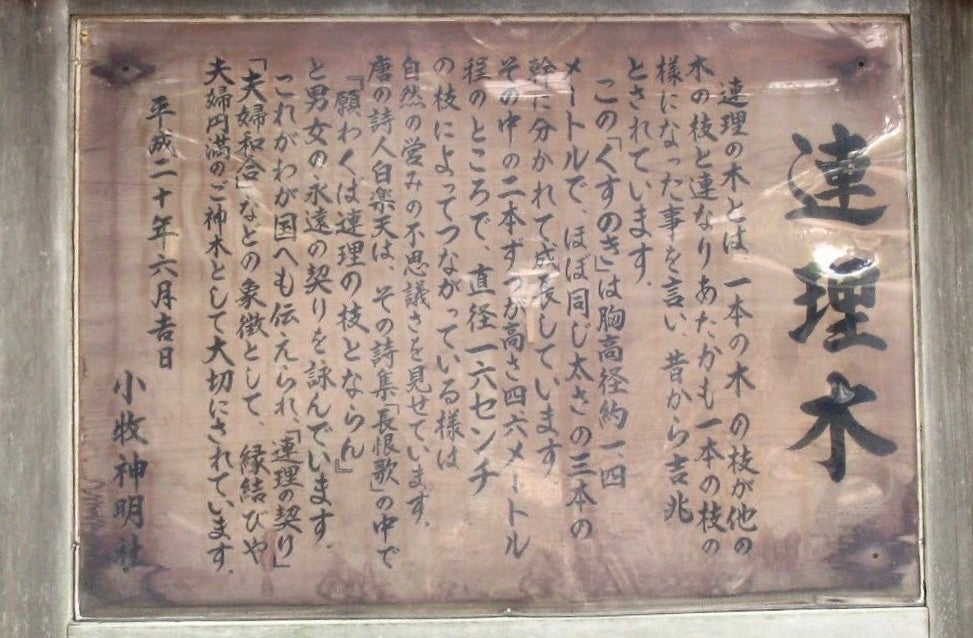 連理木
連理の木とは、一本の木の枝が他の
木の枝と連なりあたかも一本の枝の
様になった事を言い、昔から吉兆
とされています。
この「くすのき」は胸高径約一、四
メートルで、ほぼ同じ太さの三本の
幹に分かれて成長しています
その中の二本ずつが高さ四、六メートル
程のところで、直径一六センチ
の枝によってつながっている様は
自然の営みの不思議さを見せています。
唐の詩人白楽天は、その詩集「長恨歌」の中で
『願わくば連理の枝とならん』
と男女の永遠の契りを詠んでいます。
これがわが国へも伝えられ、「連理の契り」
「夫婦和合」などの象徴として、縁結びや
夫婦円満のご神木として大切にされています。
平成二十年六月吉日
小牧神明社